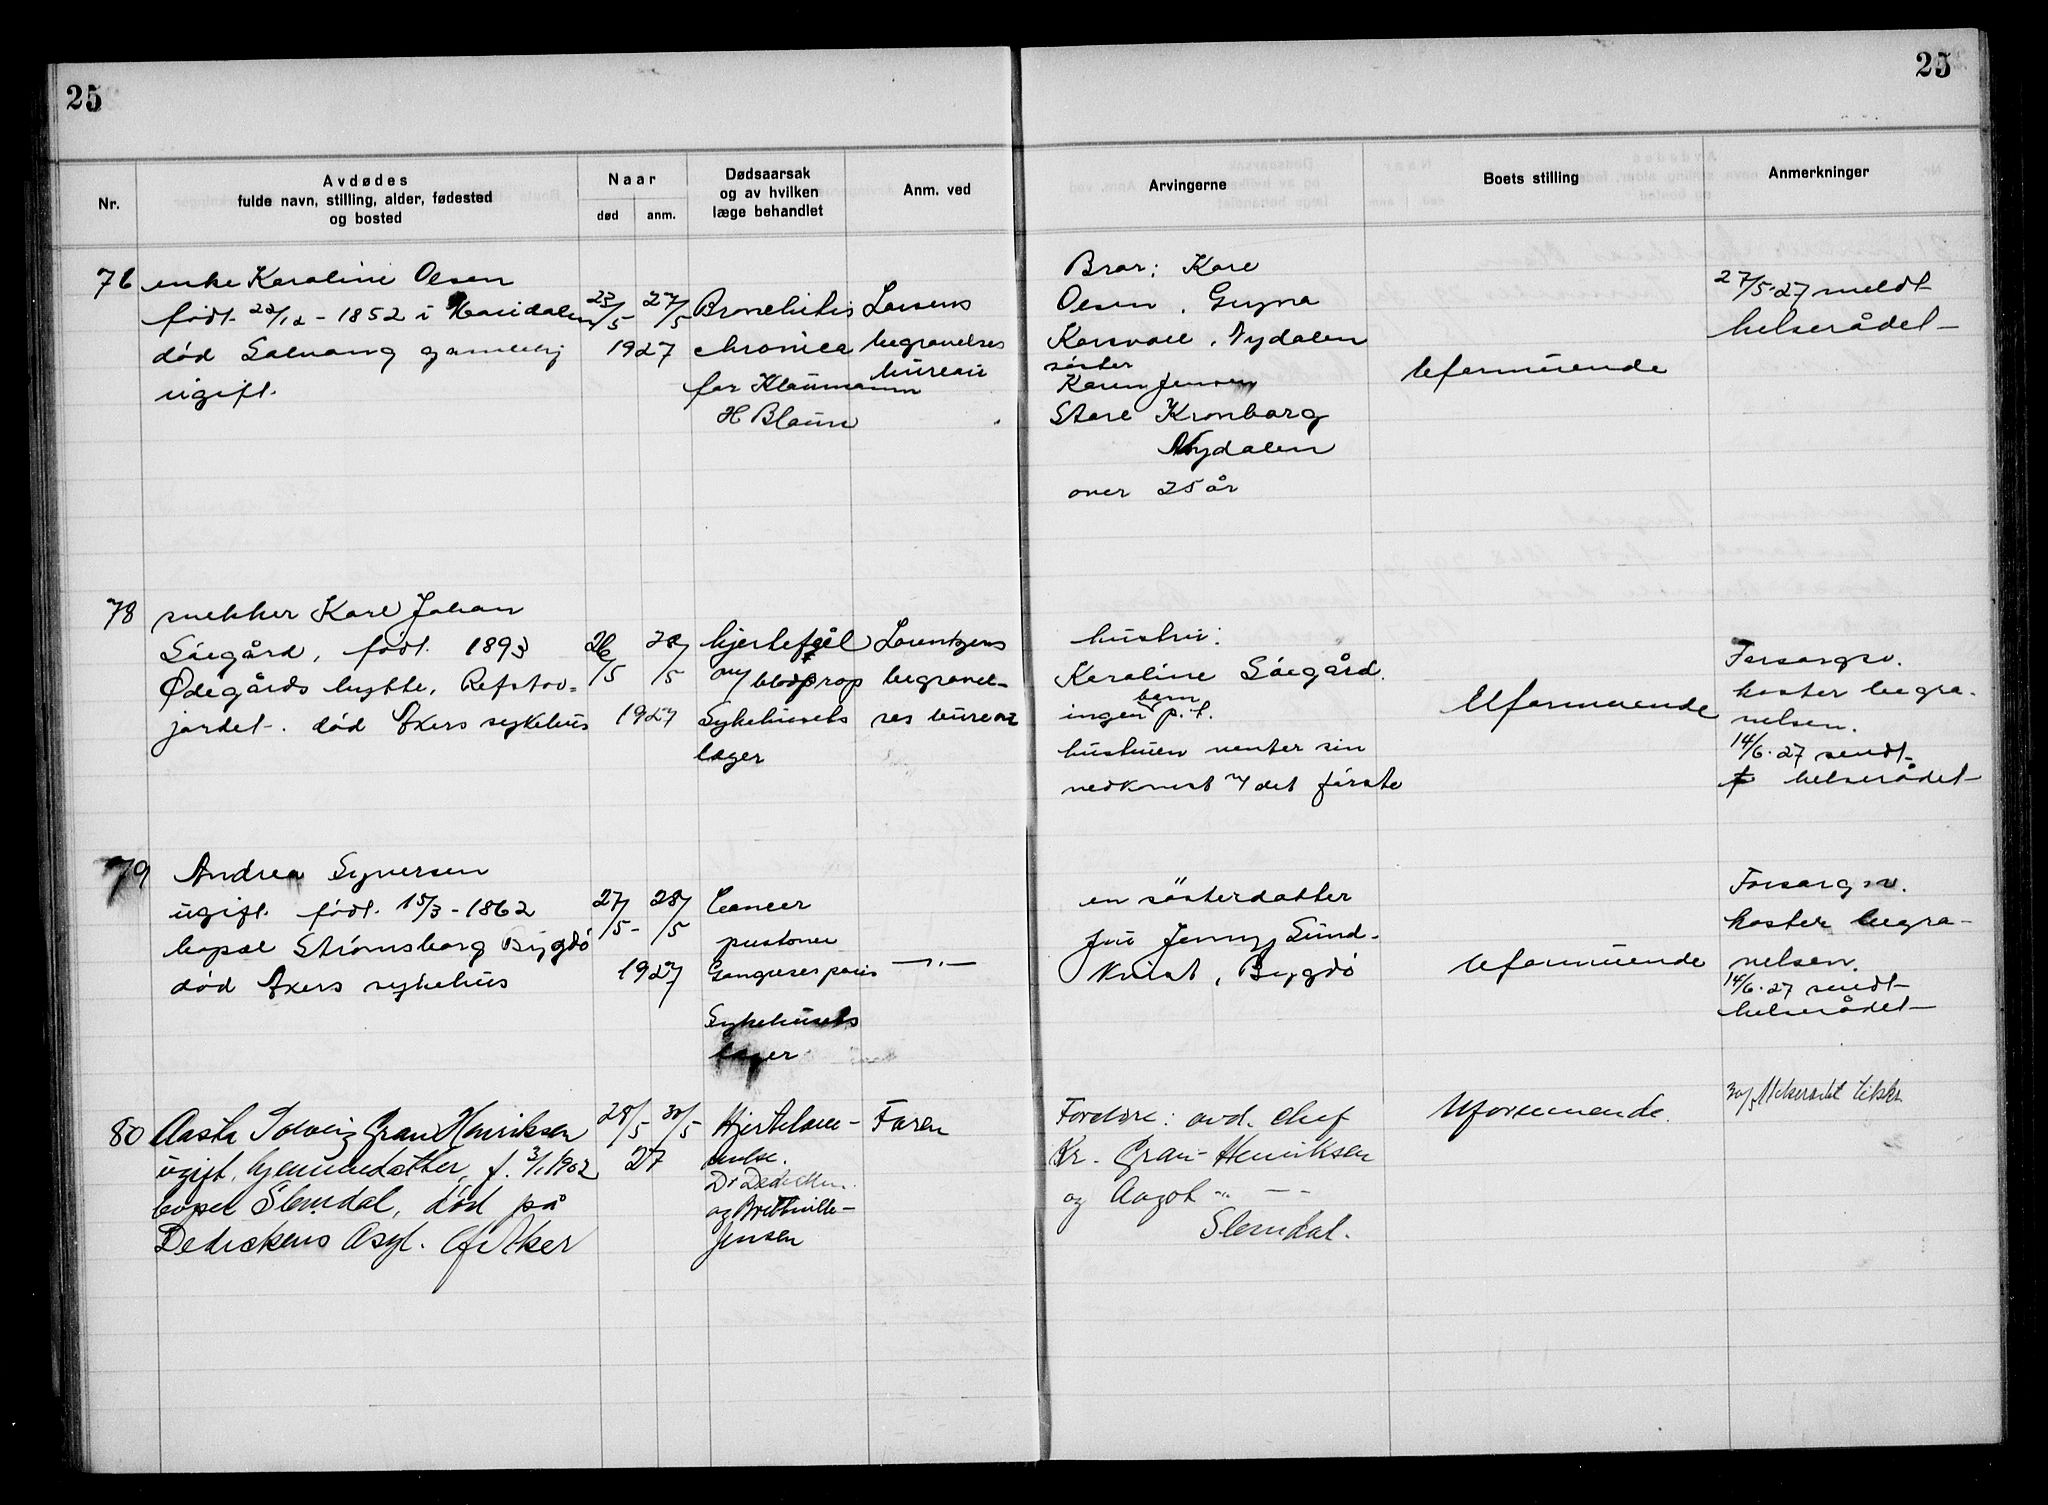 25
25
Nr.
Avdødes
fulde navn, stilling, alder, fødested
og bosted
Naar
død
anm.
Dødsaarsak
og av hvilken
læge behandlet
Anm. ved
Arvingerne
Boets stilling
Anmerkninger
76
enke Karoline Olsen
født 22/12 - 1852 i Maridalen
død Solvang gamlehj
ugift.
23/5 27/5
1927
Bronchitis
chronica
for Klaumann
H Blaun
Larsens
begravelses
bureau
Bror: Karl
Olsen, Gugna
Korsvoll, Nydalen
søster
Karen Jensen
Store Kronborg
Nydalen
over 25 år
Uformuende
27/5-27 meldt
helserådet
78
snekker Karl Johan
Søegård, født 1893
Ødegårds hytte, Refstad-
jordet. død Akers sykehus
26/5 28/5
1927
hjertefeil
m/ blodprop
Sykehusets
læger
Lorentzens
begravel-
ses bureau
hustru:
Karoline Søegård.
ingen barn p.t.
hustruen venter sin
nedkomst m/ det første
Uformuende
Forsorgsv.
koster begra-
velsen.
14/6-27 sendt
helserådet
79
Andrea Syversen
ugift født 15/3 - 1862
bopæl Strømsborg Bygdø
død Akers sykehus
27/5 - 28/5
1927
Cancer
Sykehusets
læger
-"-
en søsterdatter
fru Jenny Sund-
kvist, Bygdø
Uformuende
Forsorgsv.
koster begra-
velsen.
14/6-27 sendt
helserådet
80
Aasta Solveig Gran Henriksen
ugift, hjemmedatter, f. 3/1 1902
bopæl Slemdal, død på
Dedichens Asyl. Ø. Aker
28/5 30/5
27
Hjertelam-
melse.
Dr Dedichen
og Bretteville-
Jensen
Faren
Foreldre: avd. chef
Kr. Gran-Henriksen
og Aagot -"- -"-
Slemdal.
Uformuende.
30/5 Helserådet tilskr.